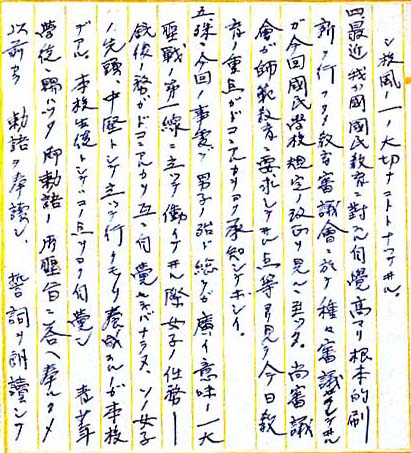 シ校風ノ一ノ大切ナコトトナツテ井ル。
四最近我ガ國國民教育ニ対スル自覺高マリ根本的刷
新ヲ行フタメ教育審議會ニ於テ種々審議サレテ井ル
ガ今回國民學校規定ノ改正ヲ見ルニ至ツタ。尚審議
會ガ師範教育ニ要求シテ井ル点等ヲ見テ今日教
育ノ重点ガドコニアルカヲヨク承知シテホシイ。
五殊ニ今回ノ事変デ男子ノ殆ド総テガ廣イ意味ノ一大
聖戰ノ第一線ニ立ツテ働イテ井ル際女子ノ任務―
銃後ノ務ガドコニアルカヲ互ニ自覺セネバナラヌ、ソノ女子
ノ先頭、中堅トシテ立ツテ行クモノヲ養成スルガ本校
デアル。本校生徒トシテハコノ点ヲヨク自覺シ 青少年
學徒ニ賜ハツタ御勅語ノ御聖旨ニ答ヘ奉ルタメ
以前ヨリ 勅語ヲ奉讀シ、誓詞ヲ朗讀シテ